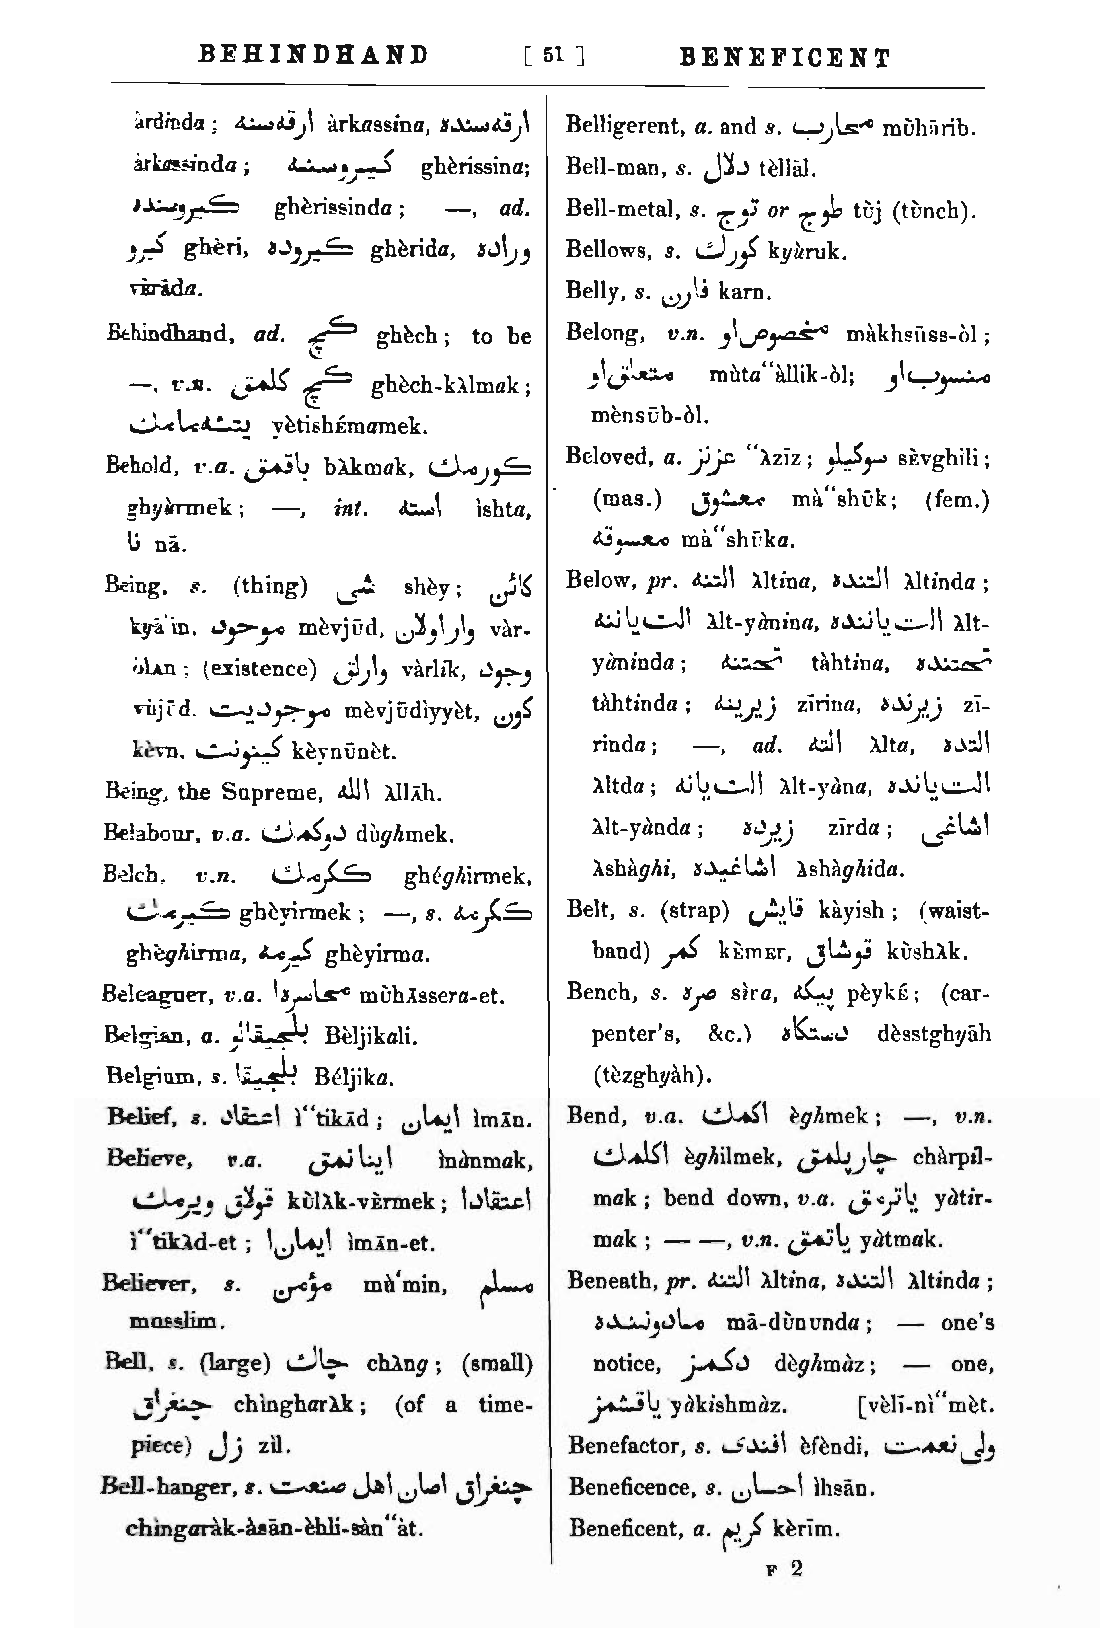 BEHINDHAND [ 51 ] BENEFICENT
àrdinda; ارقه‌سنه àrkassina, ارقه‌سنده
àrkassinda; كيروسنه ghèrissina;
كيروسنده ghèrissinda; —, ad.
كيرو ghèri, كيروده ghèrida, وراده
vèràda.
Behindhand, ad. كچ ghèch; to be
—, v.n. كچ كلمق ghèch-kλlmak;
يتشه‌مامك yètishÉmamek.
Behold, v.a. باقمق bλkmak, كورمك
ghyùrmek; —, int. اسشته ìshta,
نا nā.
Being, s. (thing) شی shèy; كائن
kyā'in, موجود mèvjūd, واراولان vàr-
òlλn; (existence) وارلق vàrlik, وجود
vùjūd. موجوديت mèvjūdìyyèt, كون
kèvn, كينونت kèynūnèt.
Being, the Supreme, الله λllāh.
Belabour, v.a. دوكمك dùghmek.
Belch, v.n. ككرمك ghéghirmek,
كيرمك ghèyirmek; —, s. ككرمه
ghèghirma, كيرمه ghèyirma.
Beleaguer, v.a. محاصره‌ا mùhāssera-et.
Belgian, a. بلجيقالو Bèljikali.
Belgium, s. بلجيقا Béljika.
Belief, s. اعتقاد ì“tikād; ايمان ìmān.
Believe, v.a. اينانمق ìnànmak,
قولاق ويرمك kùlλk-vÈrmek; اعتقادا
ì“tikλd-et; ايمان‌ا ìmān-et.
Believer, s. مؤمن mù‘min, مسلم
musslim.
Bell, s. (large) چاك chλng; (small)
چنغراق chìngharλk; (of a time-
piece) زل zìl.
Bell-hanger, s. چنغراق اصان اهل صنعت
chìngaràk-àsān-èhli-sàn“àt.
Belligerent, a. and s. محارب mùhārib.
Bell-man, s. دلال tèllāl.
Bell-metal, s. توج or طوج tùj (tùnch).
Bellows, s. كورك kyùruk.
Belly, s. قارن karn.
Belong, v.n. مخصوص‌او màkhsūss-òl;
متعلق‌او mùta“àllik-òl; منسوب‌او
mènsūb-òl.
Beloved, a. عزيز “λzīz; سوكيلو sÈvghili;
(mas.) معشوق mà“shūk; (fem.)
معسوقه mà“shūka.
Below, pr. التنه λltina, التنده λltinda;
الت‌ياننه λlt-yànina, الت‌ياننده λlt-
yàninda; تحتنه tàhtina, تحتنده
tàhtinda; زيرينه zīrina, زيرنده zī-
rinda; —, ad. التـه λlta, التده
λltda; الت‌يانه λlt-yàna, الت‌يانده
λlt-yànda; زيرده zīrda; اشاغی
λshàghi, اشاغيده λshàghida.
Belt, s. (strap) قايش kàyish; (waist-
band) كمر kÈmEr, قوشاق kùshλk.
Bench, s. صره sìra, پيكه pèykÉ; (car-
penter's, &c.) دستكاه dèsstghyāh
(tèzghyàh).
Bend, v.a. اكمك èghmek; —, v.n.
اكلمك èghilmek, چارپلمق chàrpil-
mak; bend down, v.a. ياترمق yàtir-
mak; — —, v.n. ياتمق yàtmak.
Beneath, pr. التنه λltina, التنده λltinda;
مادوننده mā-dùnunda; — one's
notice, دكمز dèghmàz; — one,
ياقشمز yàkishmàz. [vèlī-nì“mèt.
Benefactor, s. افندی èfèndi, ولی نعمت
Beneficence, s. احسان ìhsān.
Beneficent, a. كريم kèrīm.
F 2